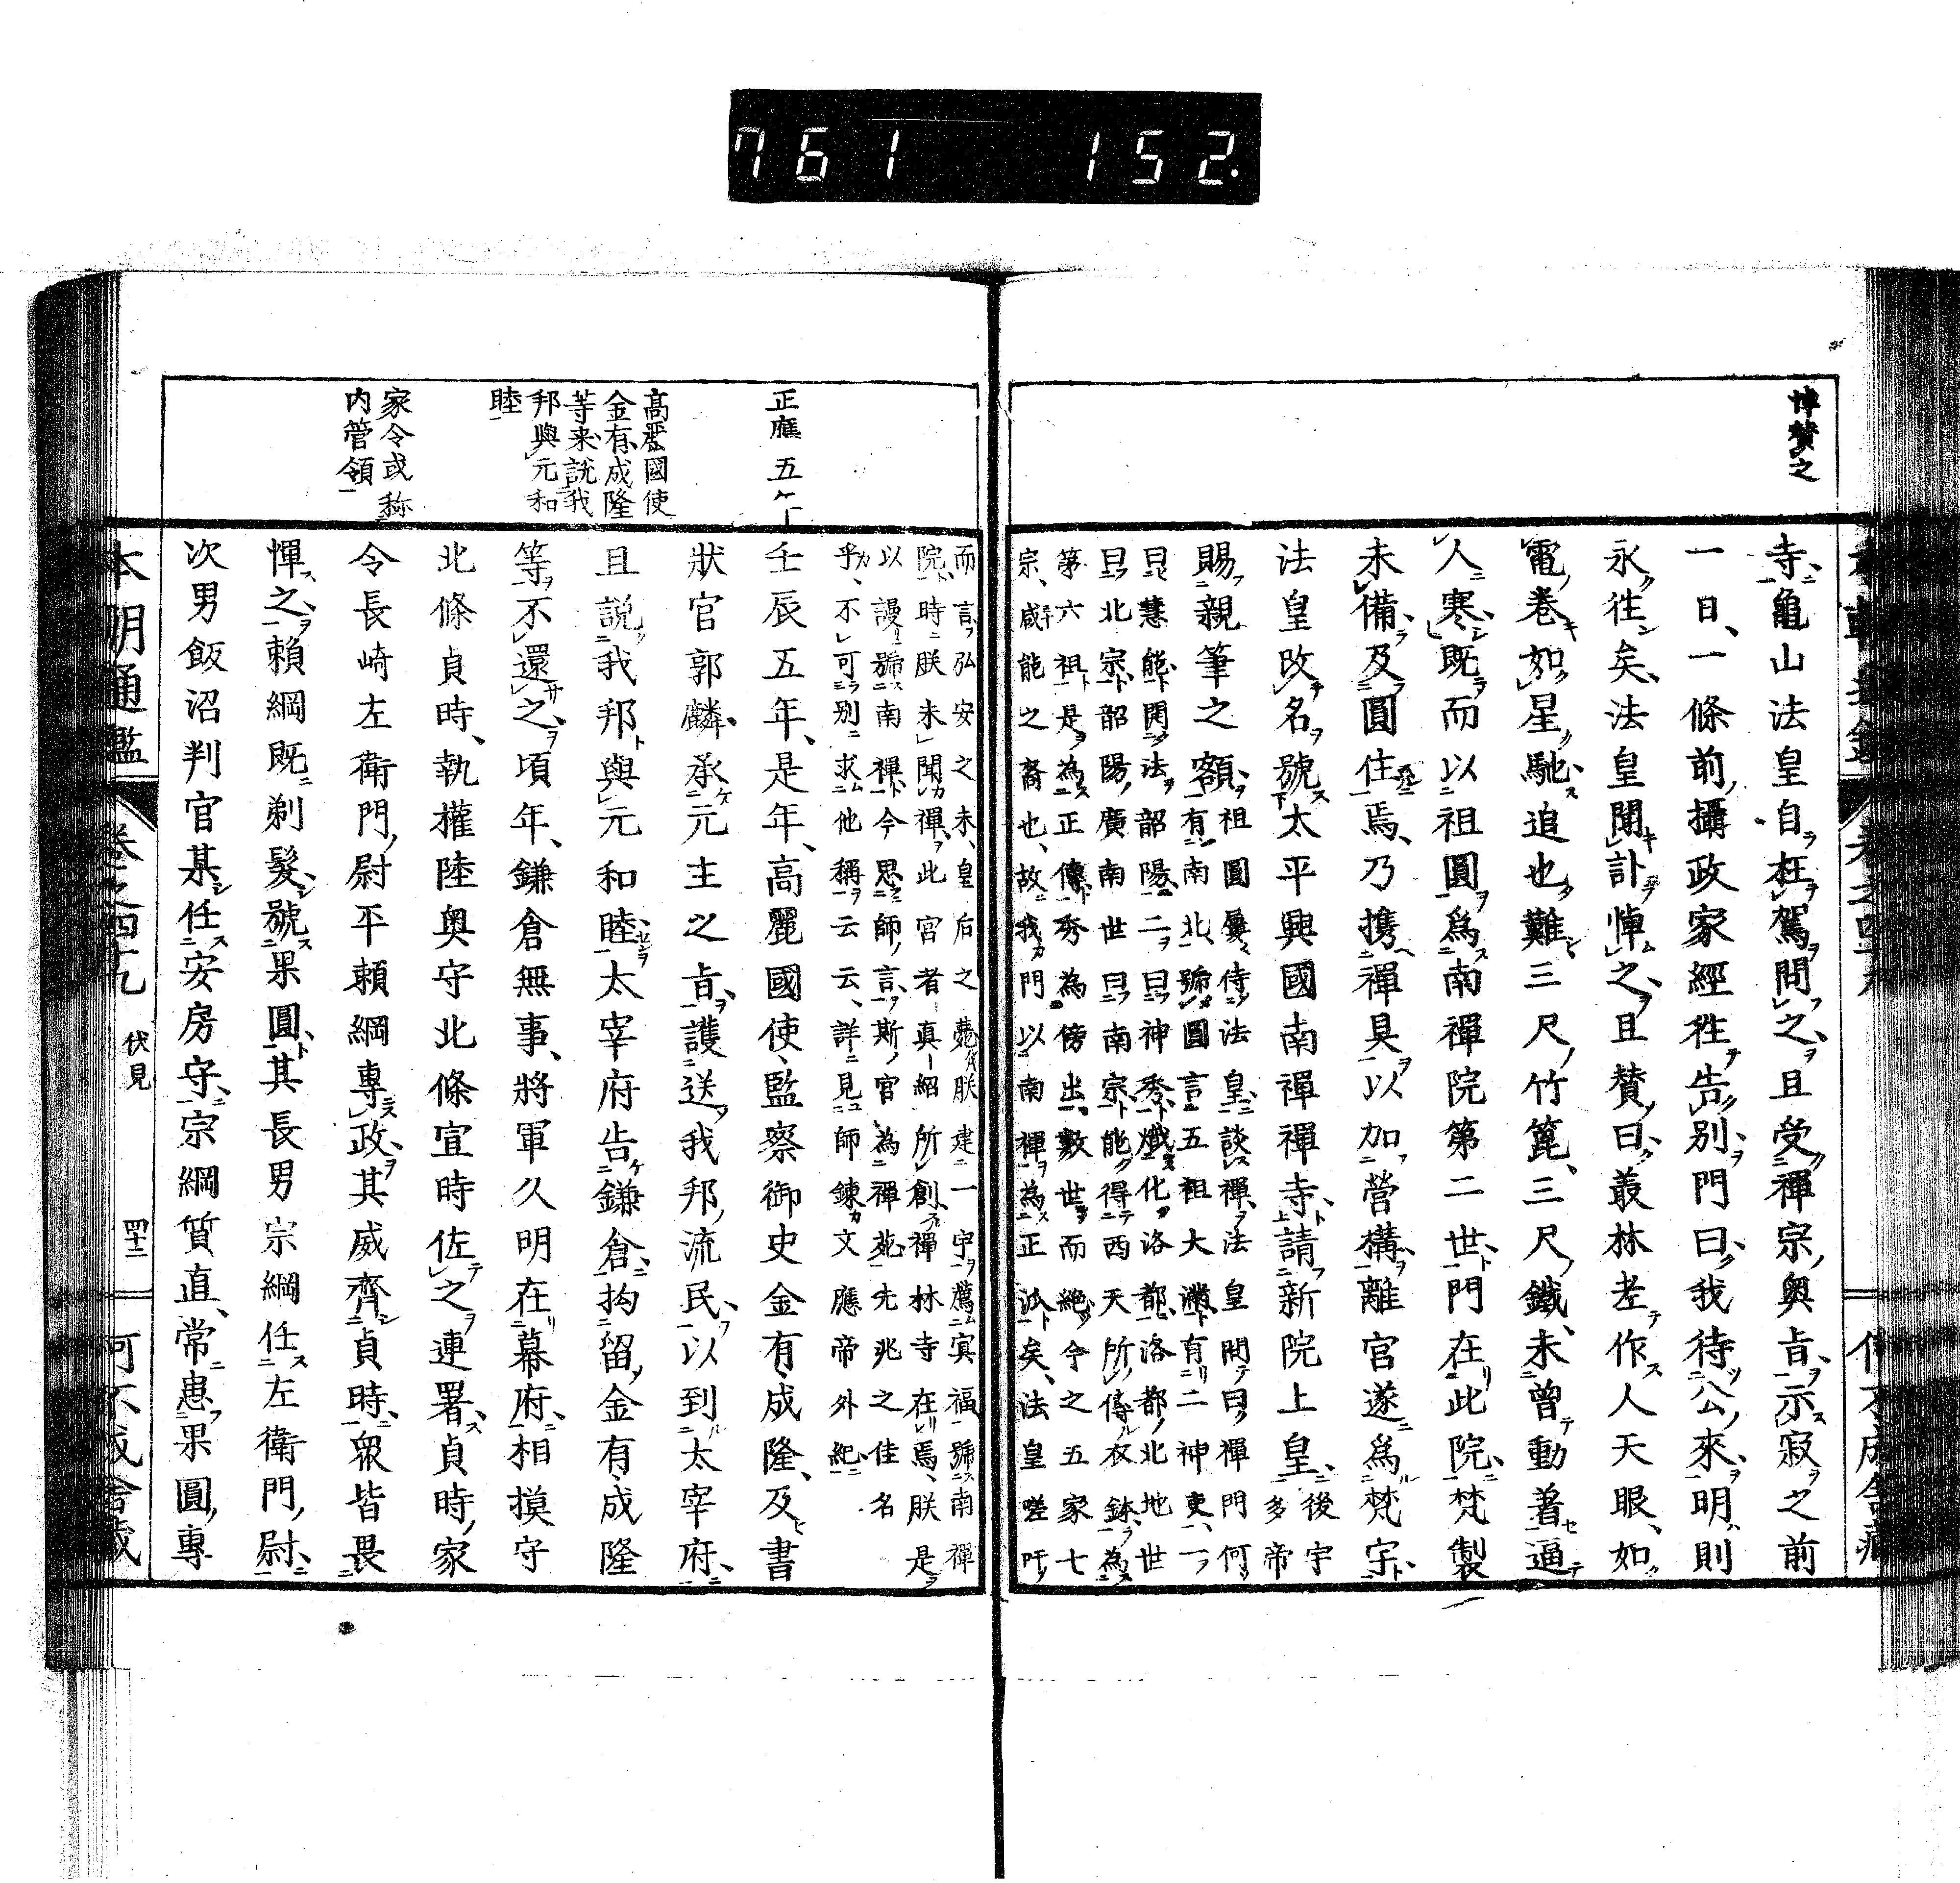 761 152.
悼贊之
寺龜山法皇自枉駕問之且受禪宗奧旨示寂之前
一日一條前攝政家經徃告別門曰我待公來明則
永徃矣法皇聞訃悼之且贊曰叢林老作人天眼如
電卷如星馳追也難三尺竹篦三尺鐵未曾動着逼
人寒既而以祖圓為南禪院第二世門在此院梵製
未備及圓住焉乃携禪具以加營構離宮遂為梵宇
法皇改名號太平興國南禪禪寺請新院上皇後宇多帝
賜親筆之額祖圓屢侍法皇談禪法皇問曰禪門何
有南北號圓言五祖大滿有二神叟一
曰慧能閲法韶陽二曰神秀熾化洛都洛都北地世
曰北宗韶陽廣南世曰南宗能得西天所傳衣鉢為
第六祖是為正傳秀為傍出數世而絶今之五家七
宗咸能之裔也故我門以南禪為正派矣法皇嗟吁
本朝通鑑 卷之四十九 伏見 四十二 何不成舍藏
而言弘安之末皇后之薨朕建一宇薦冥福號南禪
院時朕未聞禪此官者真紹所創禪林寺在焉朕是
以謾號南禪今思師言斯官為禪苑先兆之佳名
乎不可別求他稱云云詳見師錬文應帝外紀
正應五
壬辰五年是年高麗國使監察御史金有成隆及書
狀官郭麟承元主之旨護送我邦流民以到太宰府
高麗國使
金有成隆
等来說我
邦與元和
睦
且説我邦與元和睦太宰府告鎌倉拘留金有成隆
等不還之頃年鎌倉無事將軍久明在幕府相摸守
北條貞時執權陸奥守北條宣時佐之連署貞時家
家令或称
内管領
令長崎左衛門尉平頼綱專政其威齊貞時衆皆畏
憚之頼綱既剃髮號果圓其長男宗綱任左衛門尉
次男飯沼判官某任安房守宗綱質直常患果圓專